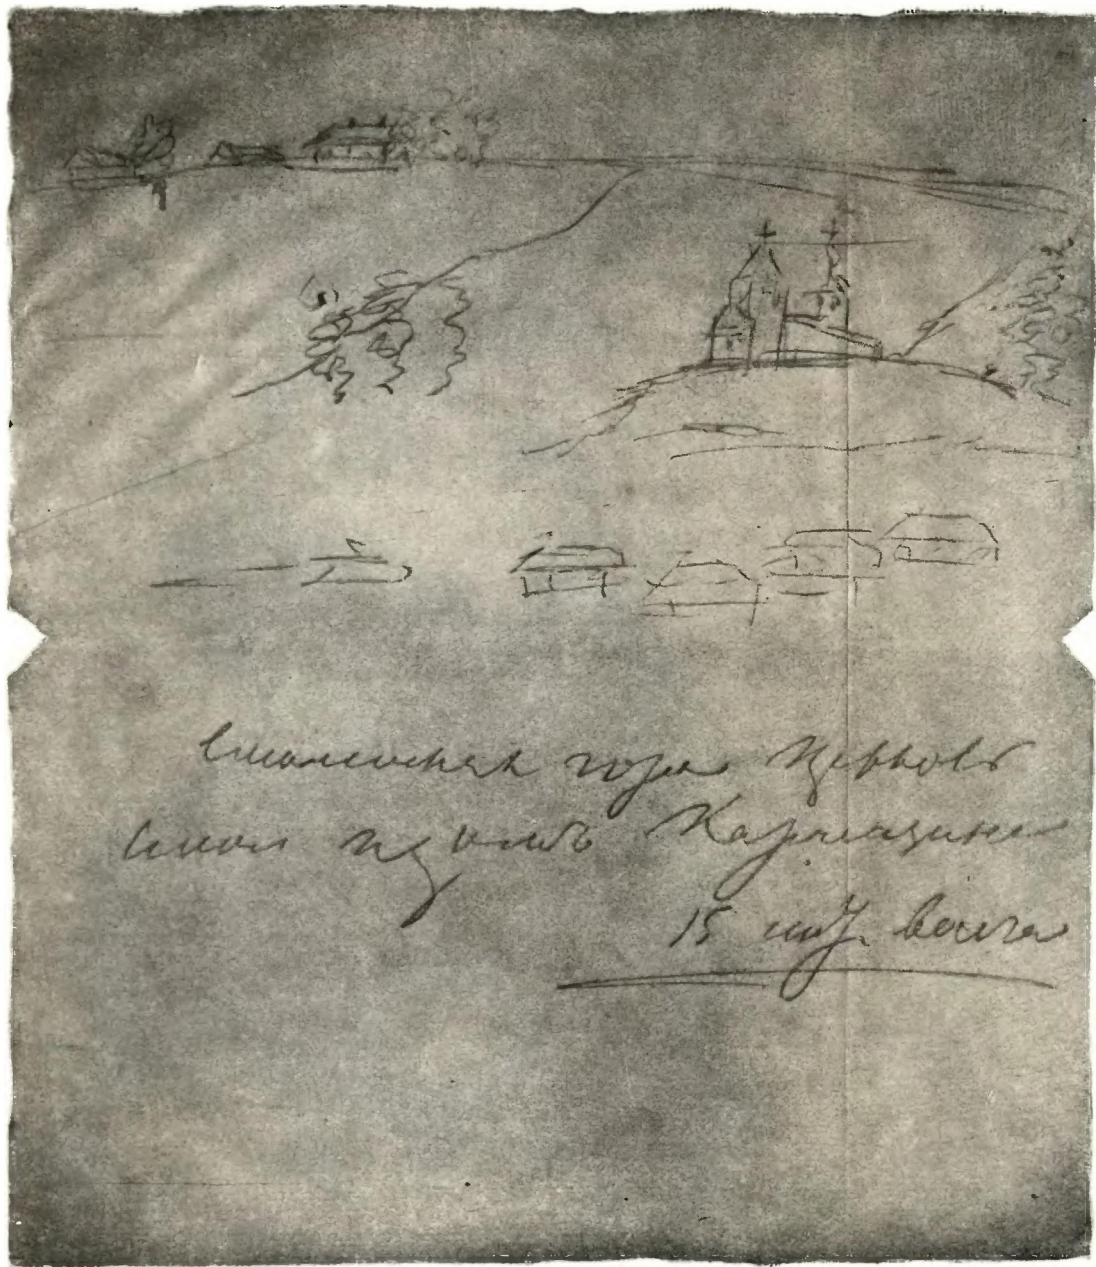 Смоленская гора Церковь
Смол и домъ Карамзина
15 сент. Волга